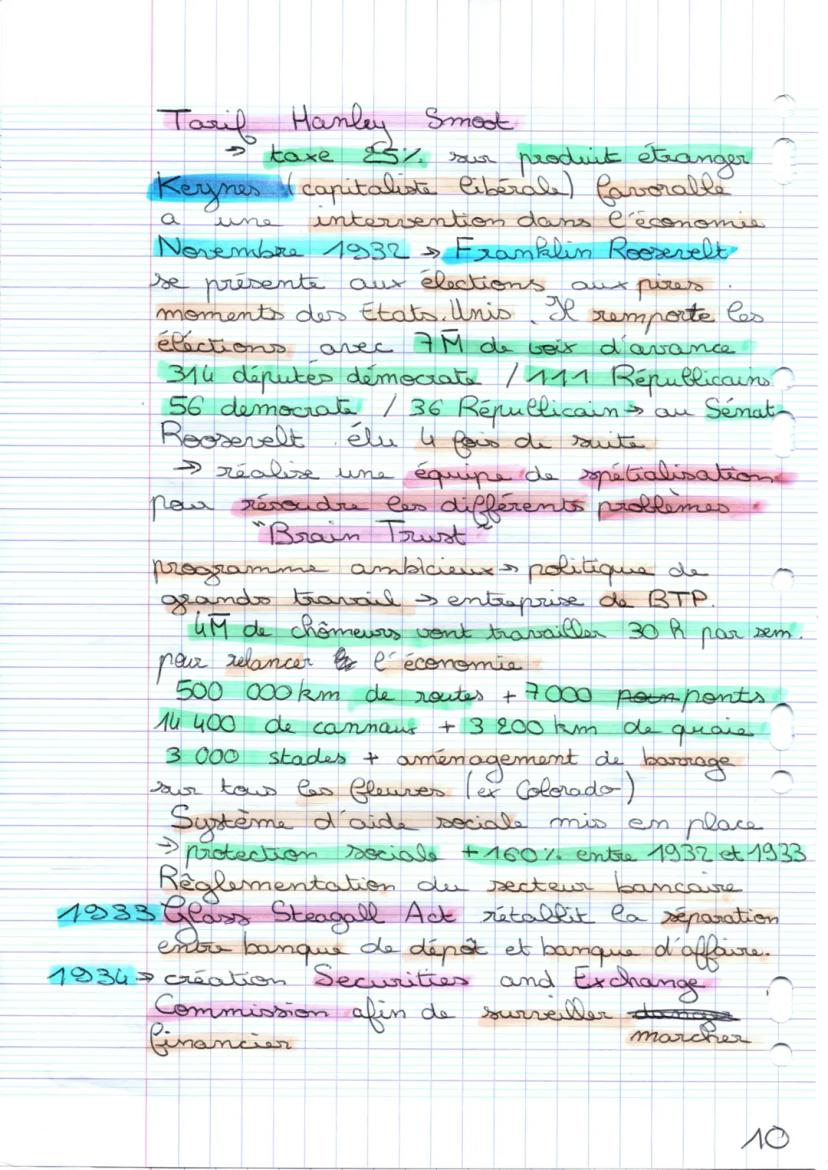 Tarif Hanley Smoot
→ taxe 25% sur produit étranger
Kerynes (capitaliste libérale) favorable
a une intervention dans l'économie
Novembre 1932 → Franklin Roosevelt
se présente aux élections aux pires
moments des Etats.Unis. Il remporte les
éléctions avec 7M de voix d'avance
314 députés démocrate / 111 Républicains
56 democrate / 36 Républicain → au Sénat
Roosevelt élu 4 fois de suite
→ réalise une équipe de spétialisation
pour résoudre les différents problèmes
"Brain Trust"
programme ambicieux → politique de
grands travail → entreprise de BTP.
4M de chômeurs vont travailler 30 h par sem.
pour relancer l'économie
500 000 km de routes + 7000 pour ponts
14 400 de cannaus + 3 200 km de quaie
3 000 stades + aménagement de barrage
sur tous les fleuves (ex Colorado)
Système d'aide sociale mis en place
→ protection sociale +160% entre 1932 et 1933
Règlementation du secteur bancaire
1933 Glass Steagall Act rétablit la séparation
entre banque de dépôt et banque d'affaire.
1934 → création Securities and Exchange
Commission afin de surveiller
marcher
financier
10